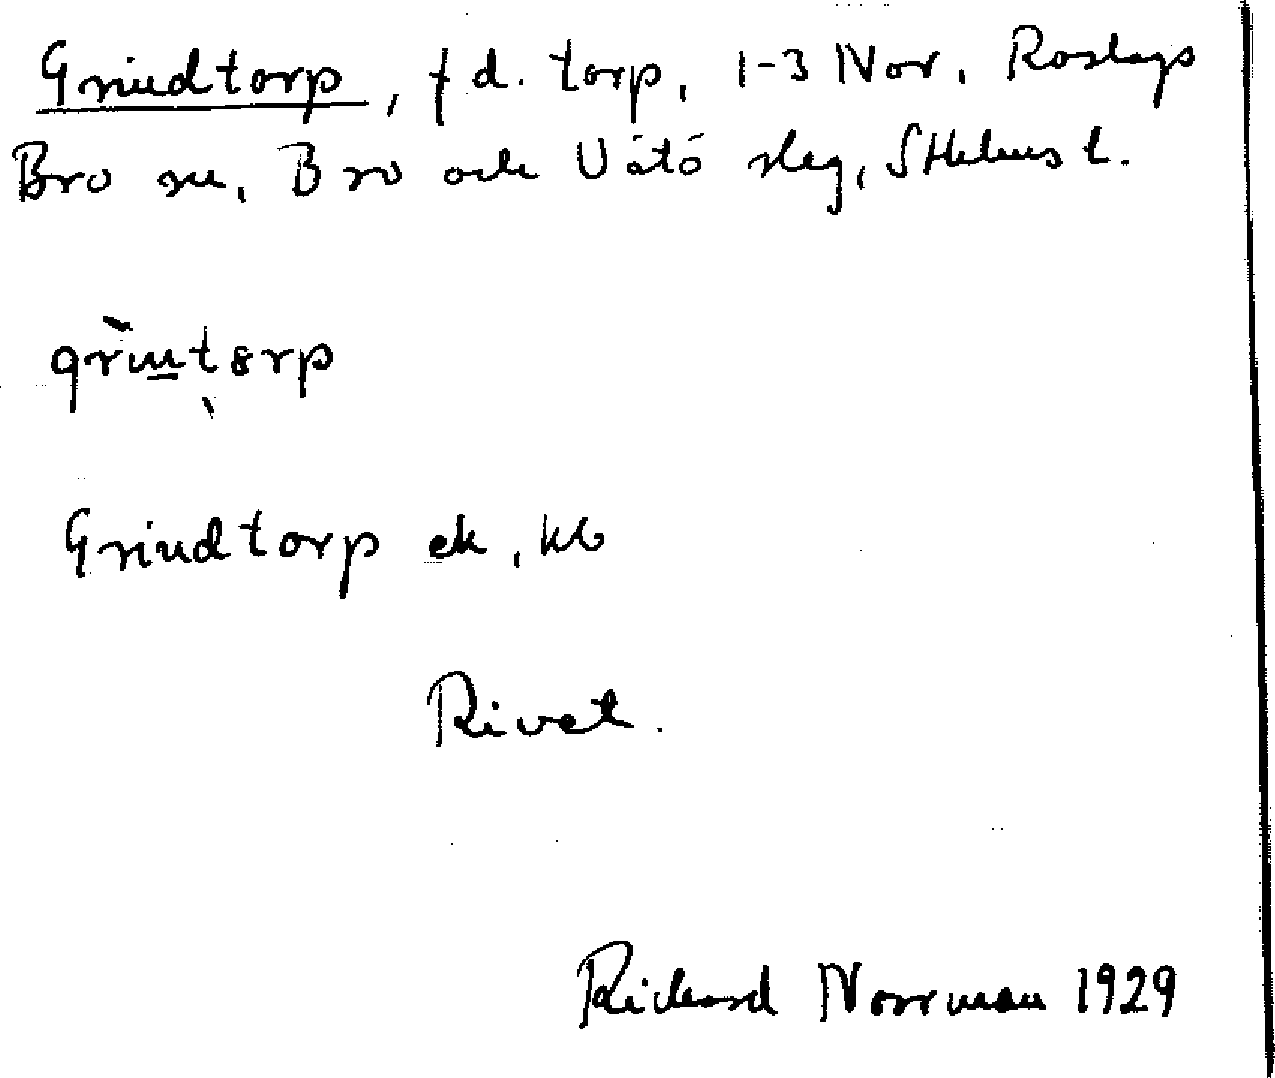 Grindtorp, f d. torp, 1-3 Nor, Roslags
Bro sn, Bro och Vätö slag, Sthlms l.
Grindtorp ek, kb
Rivet.
Richard Norrman 1929